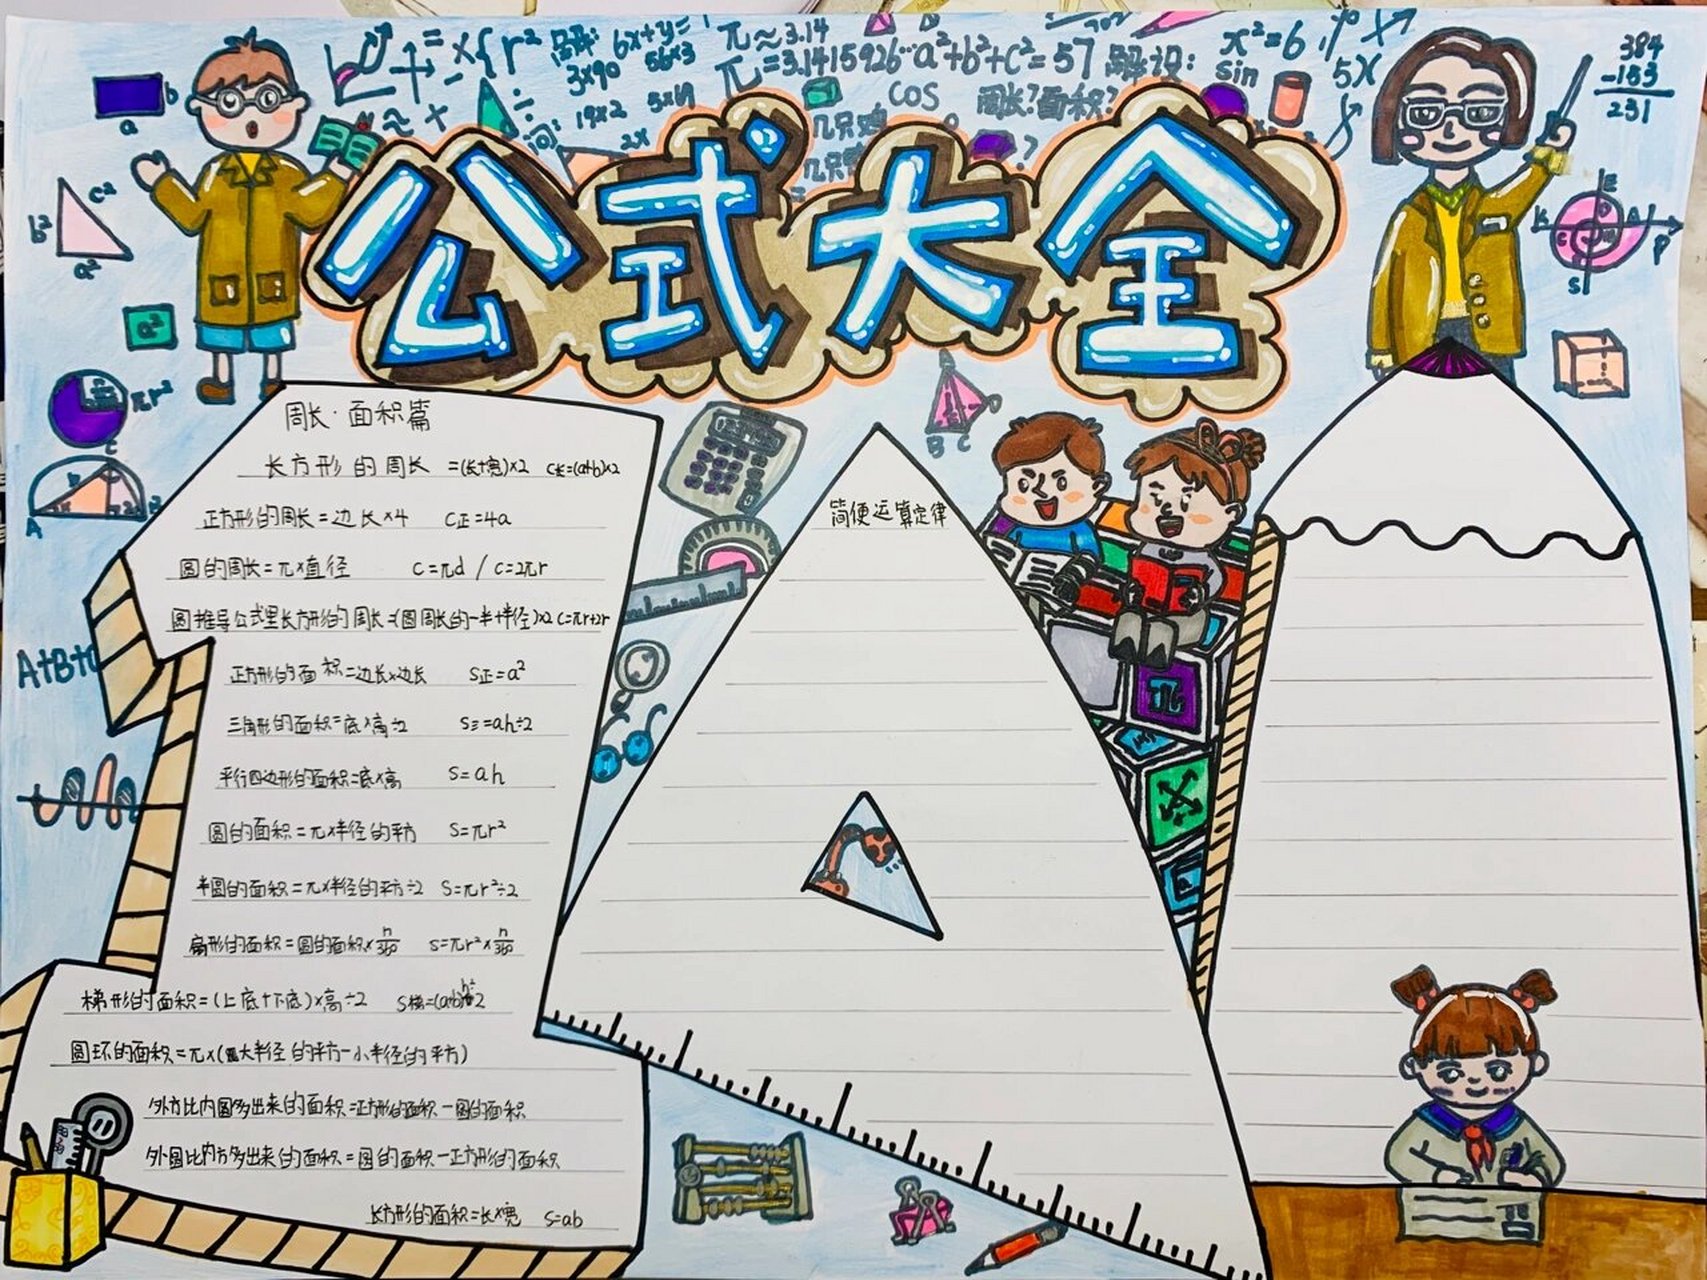 公式大全
π≈3.14
π=3.1415926…a²+b²+c²=57
解设:
x²=6
sin
5X
cos
周长?面积?
384
-153
231
6x+y=
3×90
56×3
19×2
5×69
2x
r²
b
a
c²
b²
a²
a²
πr²
A+B+
周长·面积篇
长方形的周长 =(长+宽)×2 C长=(a+b)×2
正方形的周长=边长×4 C正=4a
圆的周长=π×直径 C=πd / C=2πr
圆推导公式里长方形的周长=(圆周长的一半+半径)×2 C=πr+2r
正方形的面积=边长×边长 S正=a²
三角形的面积=底×高÷2 S三=ah÷2
平行四边形的面积=底×高 S=ah
圆的面积=π×半径的平方 S=πr²
半圆的面积=π×半径的平方÷2 S=πr²÷2
扇形的面积=圆的面积×n/360 S=πr²×n/360
梯形的面积=(上底+下底)×高÷2 S梯=(a+b)÷2
圆环的面积=π×(大半径的平方-小半径的平方)
外方比内圆多出来的面积=正方形的面积-圆的面积
外圆比内方多出来的面积=圆的面积-正方形的面积
长方形的面积=长×宽 S=ab
简便运算定律
B C
π